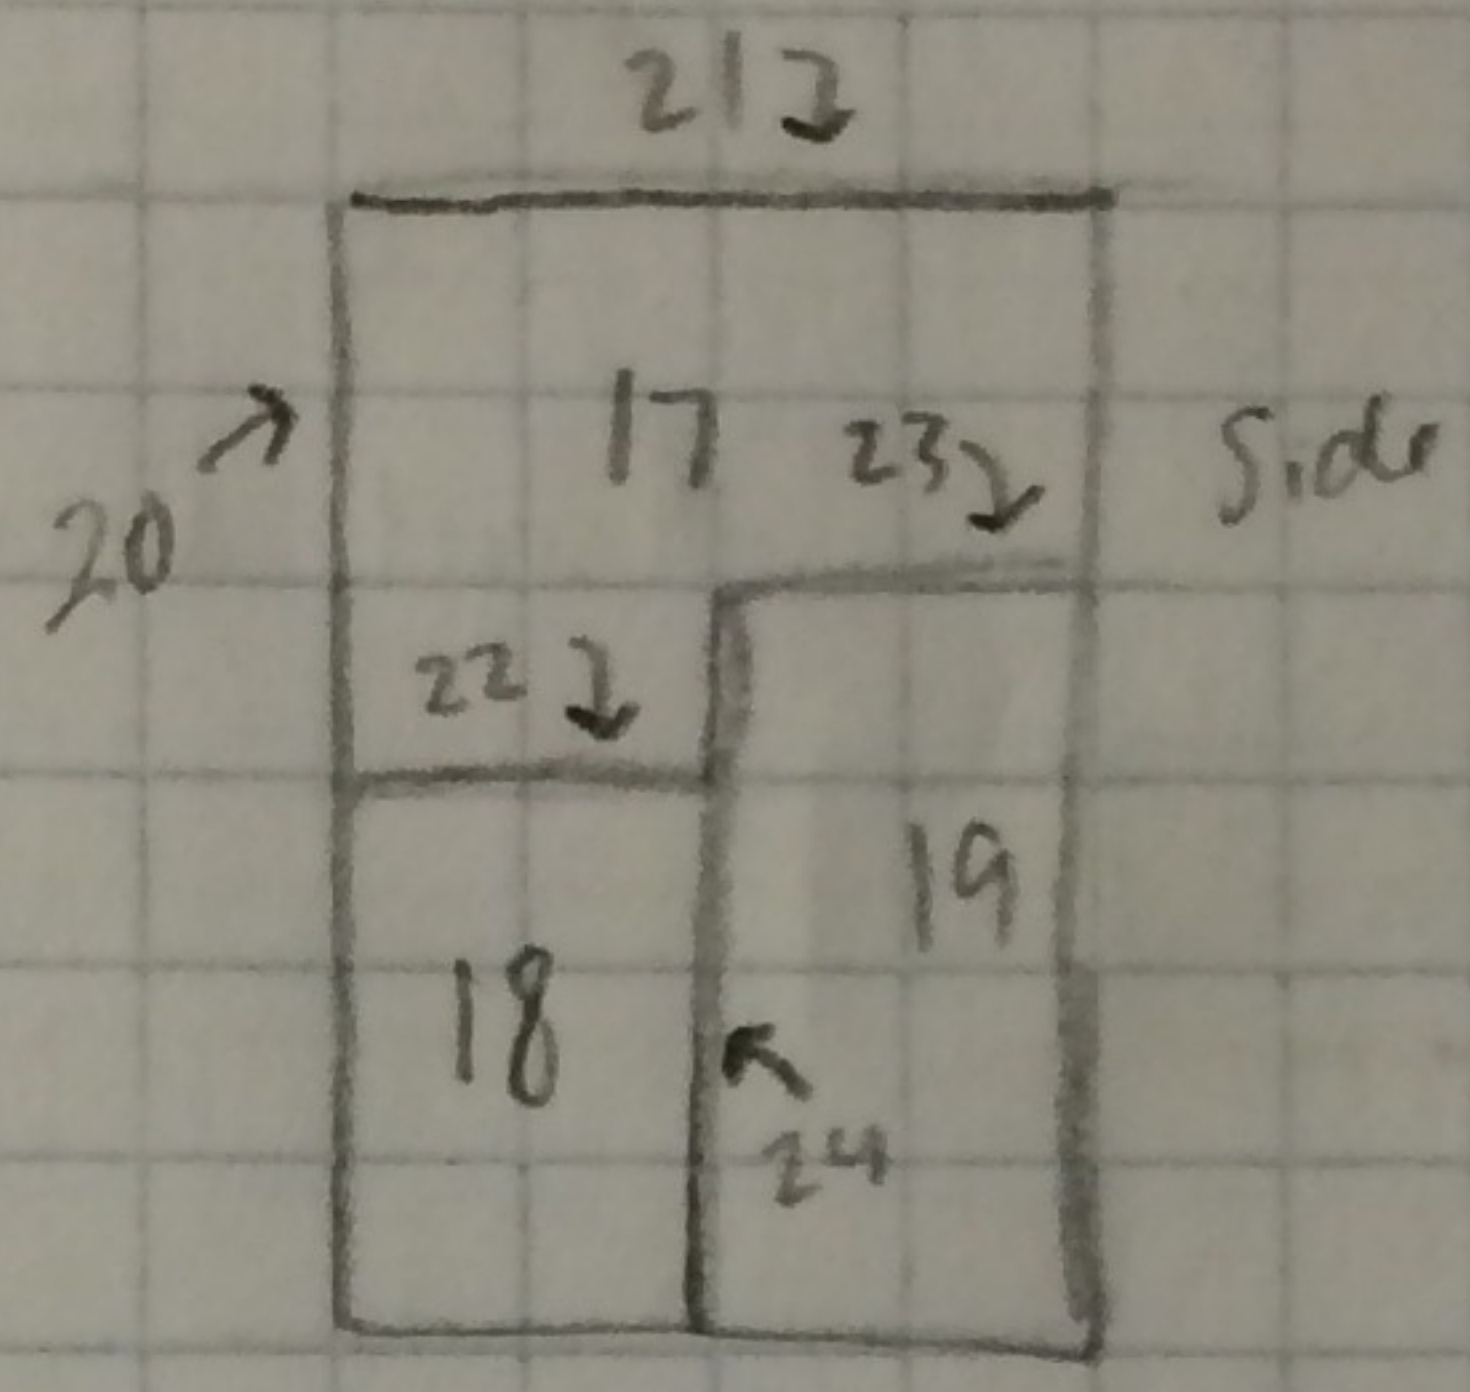 21
17
23
Side
20
22
19
18
24